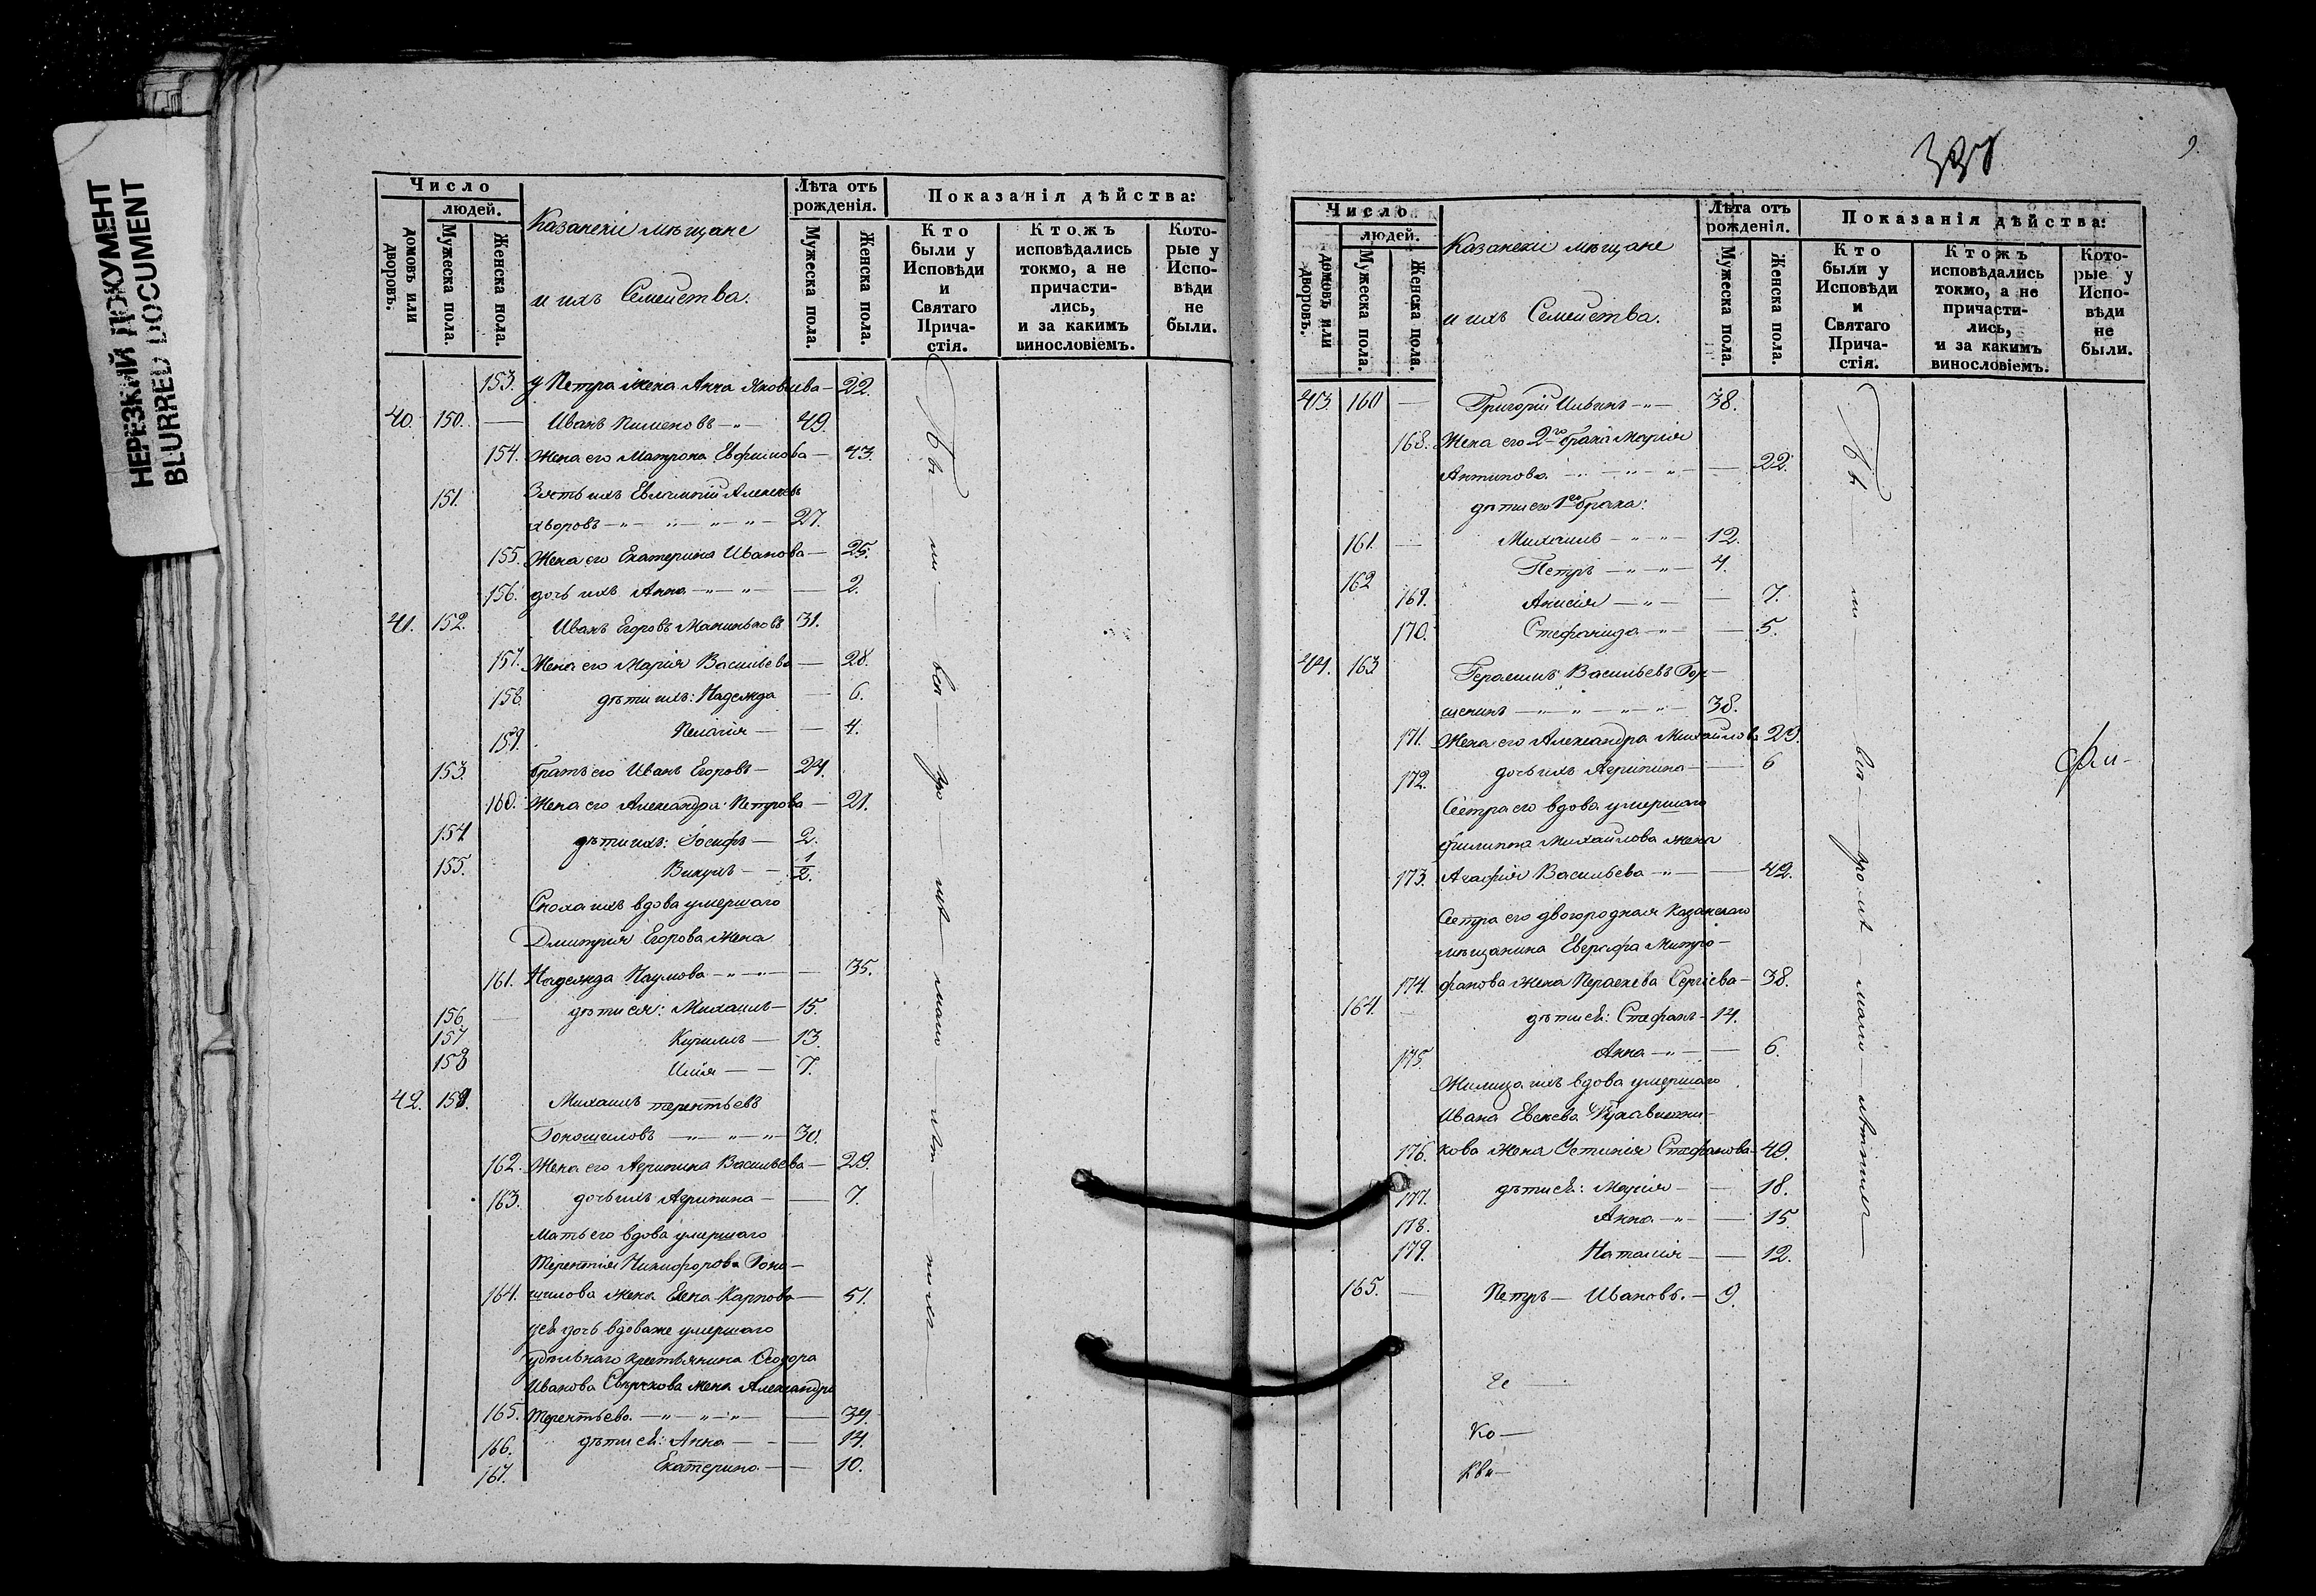 НЕРЕЗКИЙ ДОКУМЕНТ
BLURRED DOCUMENT
Число
людей.
домовъ или дворовъ.
Мужеска пола.
Женска пола.
Казанскіе мѣщане
и ихъ Семейства.
Лѣта отъ рожденія.
Мужеска пола.
Женска пола.
Показанія дѣйства:
Кто были у Исповѣди и Святаго Прича-стія.
Ктожъ исповѣдались токмо, а не причасти-лись, и за какимъ винословіемъ.
Кото-рые у Испо-вѣди не были.
153. у Петра жена Анна Яковлева — 22.
40. 150. — Иванъ Пименовъ -"- 49.
154. Жена его Матрона Евфимова — 43.
151. Зять ихъ Евлампій Алексѣевъ
-"- " -"- " — 27.
155. Жена его Екатерина Иванова — 25.
156. дочь ихъ Анна -"- " — 2.
41. 152. Иванъ Егоровъ 31.
157. Жена его Марія Васильева — 28.
158. дѣти ихъ: Надежда — 6.
159. Пелагія — 4.
153. братъ его Иванъ Егоровъ — 24.
160. Жена его Александра Петрова — 21.
154 дѣти ихъ: Іосифъ — 2.
155. Викулъ — 1/2.
Сноха ихъ вдова умершаго
Дмитрія Егорова жена
161. Надежда Наумова -"- "- — 35.
156 — дѣти ея: Михаилъ — 15.
157 Кириллъ — 13.
158 Илія — 7.
42. 159. Михаилъ Терентьевъ
Гоношиловъ -"- " -"- 30.
162. Жена его Агрипина Васильева — 29.
163. дочь ихъ Агрипина — 7.
Мать его вдова умершаго
Терентія Никифорова Гоно-
164. шилова жена Елена Карпова — 51.
у ей дочь вдова же умершаго
удѣльнаго крестьянина Ѳеодора
Иванова жена Александра
165. Терентьева. -"- " -"- — 34.
166. дѣти ей: Анна — 14.
167. Екатерина — 10.
337
9.
Число
людей.
домовъ или дворовъ.
Мужеска пола.
Женска пола.
Казанскіе мѣщане
и ихъ Семейства.
Лѣта отъ рожденія.
Мужеска пола.
Женска пола.
Показанія дѣйства:
Кто были у Исповѣди и Святаго Прича-стія.
Ктожъ исповѣдались токмо, а не причасти-лись, и за какимъ винословіемъ.
Кото-рые у Испо-вѣди не были.
43. 160 — Григорій Ильинъ -"- 38.
168. Жена его 2го брака Марія
Антипова -"- " -"- — 22.
дѣти его 1го брака:
161. — Михаилъ -"- " 12.
162 Петръ -"- " 4.
169. Анисія -"- — 7.
170. Стефанида -"- — 5.
44. 163 Герасимъ Васильевъ Гор-
шенинъ -"- " -"- " 38.
171. Жена его Александра Михайлова 29.
172. дочь ихъ Агрипина — 6
Сестра его вдова умершаго
Филиппа Михайлова жена
173. Агафія Васильева -"- — 42.
Сестра его двоюродная Казанскаго
мѣщанина Евграфа Митро-
174. фанова жена Параскева Сергіева — 38.
164. дѣти ей: Стефанъ — 14.
175. Анна -"- — 6.
Жилица ихъ вдова умершаго
Ивана Евсеева
176. кова жена Устинія Стефанова — 49.
177. дѣти ей: Марія — 18.
178. Анна -"- — 15.
179. Наталія — 12.
165. — Петръ — Ивановъ. — 9.
Ко —